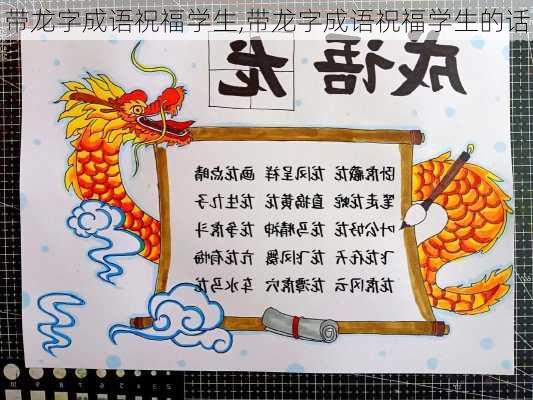 带龙字成语祝福学生,带龙字成语祝福学生的话
成语 龙
卧虎藏龙 龙凤呈祥 画龙点睛
笔走龙蛇 直捣黄龙 龙生九子
叶公好龙 龙马精神 龙争虎斗
飞龙在天 龙飞凤舞 亢龙有悔
龙虎风云 龙潭虎穴 车水马龙